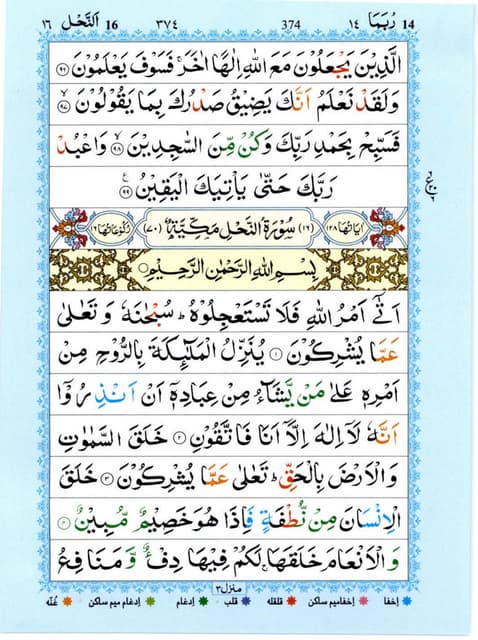 ١٤ رُبَمَا 14 374 ٣٧٤ 16 اَلنَّحْل ١٦
الَّذِيْنَ يَجْعَلُوْنَ مَعَ اللّٰهِ اِلٰهًا اٰخَرَ ۚ فَسَوْفَ يَعْلَمُوْنَ ﴿۹۶﴾
وَلَقَدْ نَعْلَمُ اَنَّكَ يَضِيْقُ صَدْرُكَ بِمَا يَقُوْلُوْنَ ﴿۹۷﴾
فَسَبِّحْ بِحَمْدِ رَبِّكَ وَكُنْ مِّنَ السّٰجِدِيْنَ ﴿۹۸﴾ وَاعْبُدْ
رَبَّكَ حَتّٰى يَاْتِيَكَ الْيَقِيْنُ ﴿۹۹﴾
اٰيَاتُهَا ١٢٨ (١٦) سُوْرَةُ النَّحْلِ مَكِّيَّةٌ (٧٠) رُكُوْعَاتُهَا ١٦
بِسْمِ اللّٰهِ الرَّحْمٰنِ الرَّحِيْمِ
اَتٰۤى اَمْرُ اللّٰهِ فَلَا تَسْتَعْجِلُوْهُ ؕ سُبْحٰنَهٗ وَ تَعٰلٰى
عَمَّا يُشْرِكُوْنَ ﴿۱﴾ يُنَزِّلُ الْمَلٰٓئِكَةَ بِالرُّوْحِ مِنْ
اَمْرِهٖ عَلٰى مَنْ يَّشَآءُ مِنْ عِبَادِهٖۤ اَنْ اَنْذِرُوْۤا
اَنَّهٗ لَاۤ اِلٰهَ اِلَّاۤ اَنَا فَاتَّقُوْنِ ﴿۲﴾ خَلَقَ السَّمٰوٰتِ
وَ الْاَرْضَ بِالْحَقِّ ؕ تَعٰلٰى عَمَّا يُشْرِكُوْنَ ﴿۳﴾ خَلَقَ
الْاِنْسَانَ مِنْ نُّطْفَةٍ فَاِذَا هُوَ خَصِيْمٌ مُّبِيْنٌ ﴿۴﴾
وَ الْاَنْعَامَ خَلَقَهَا ۚ لَكُمْ فِيْهَا دِفْءٌ وَّ مَنَافِعُ
منزل ٣
اخفا اخفامیم ساکن قلقله قلب ادغام ادغام میم ساکن غُنّه